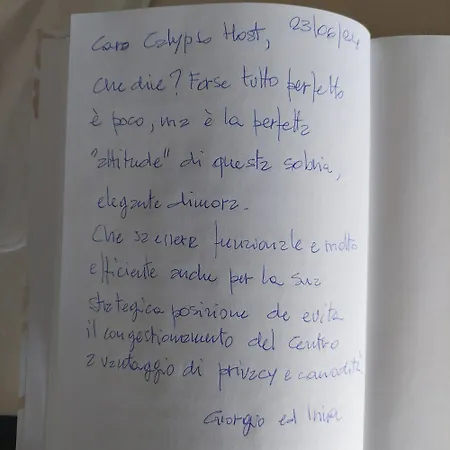 Caro Calypso Host, 23/06/24
Che dire? Forse tutto perfetto
è poco, ma è la perfetta
"attitude" di questa sobria,
elegante dimora.
Che sa essere funzionale e molto
efficiente anche per la sua
strategica posizione che evita
il congestionamento del Centro
a vantaggio di privacy e comodità
Giorgio ed